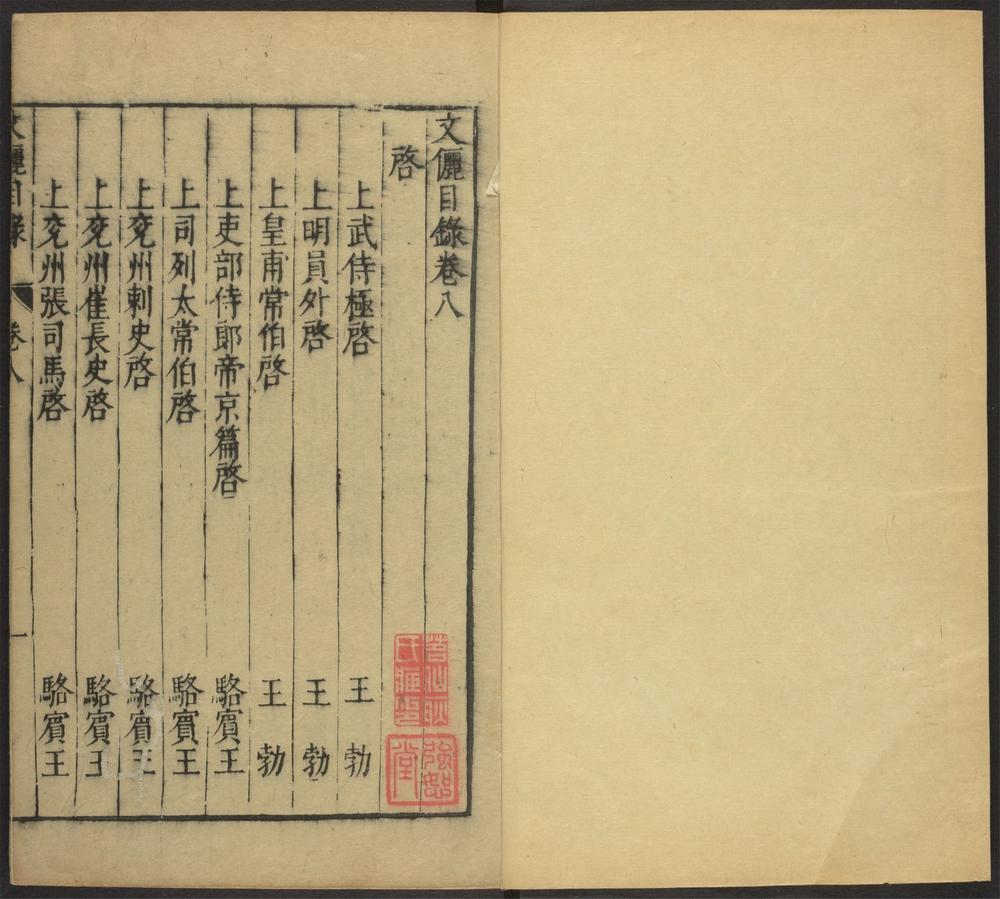 文儷目錄卷八
啓
上武侍極啓 王勃
上明員外啓 王勃
上皇甫常伯啓 王勃
上吏部侍郎帝京篇啓 駱賓王
上司列太常伯啓 駱賓王
上兗州刺史啓 駱賓王
上兗州崔長史啓 駱賓王
上兗州張司馬啓 駱賓王
文儷目錄 卷八 一
強恕堂